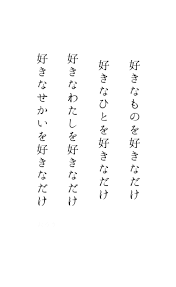 好きなものを好きなだけ
好きなひとを好きなだけ
好きなわたしを好きなだけ
好きなせかいを好きなだけ